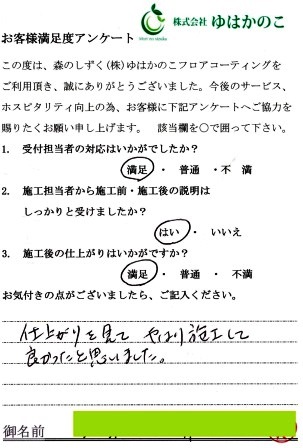 株式会社 ゆはかのこ
Mori no sizuku
お客様満足度アンケート
この度は、森のしずく(株)ゆはかのこフロアコーティングを
ご利用頂き、誠にありがとうございました。今後のサービス、
ホスピタリティ向上の為、お客様に下記アンケートへご協力を
賜りたくお願い申し上げます。 該当欄を○で囲って下さい。
1. 受付担当者の対応はいかがでしたか?
満足 ・ 普通 ・不 満
2. 施工担当者から施工前・施工後の説明は
しっかりと受けましたか?
はい ・ いいえ
3. 施工後の仕上がりはいかがですか?
満足 ・ 普通 ・ 不満
お気付きの点がございましたら、ご記入ください。
仕上がりを見て やはり施工して
良かったと思いました。
御名前